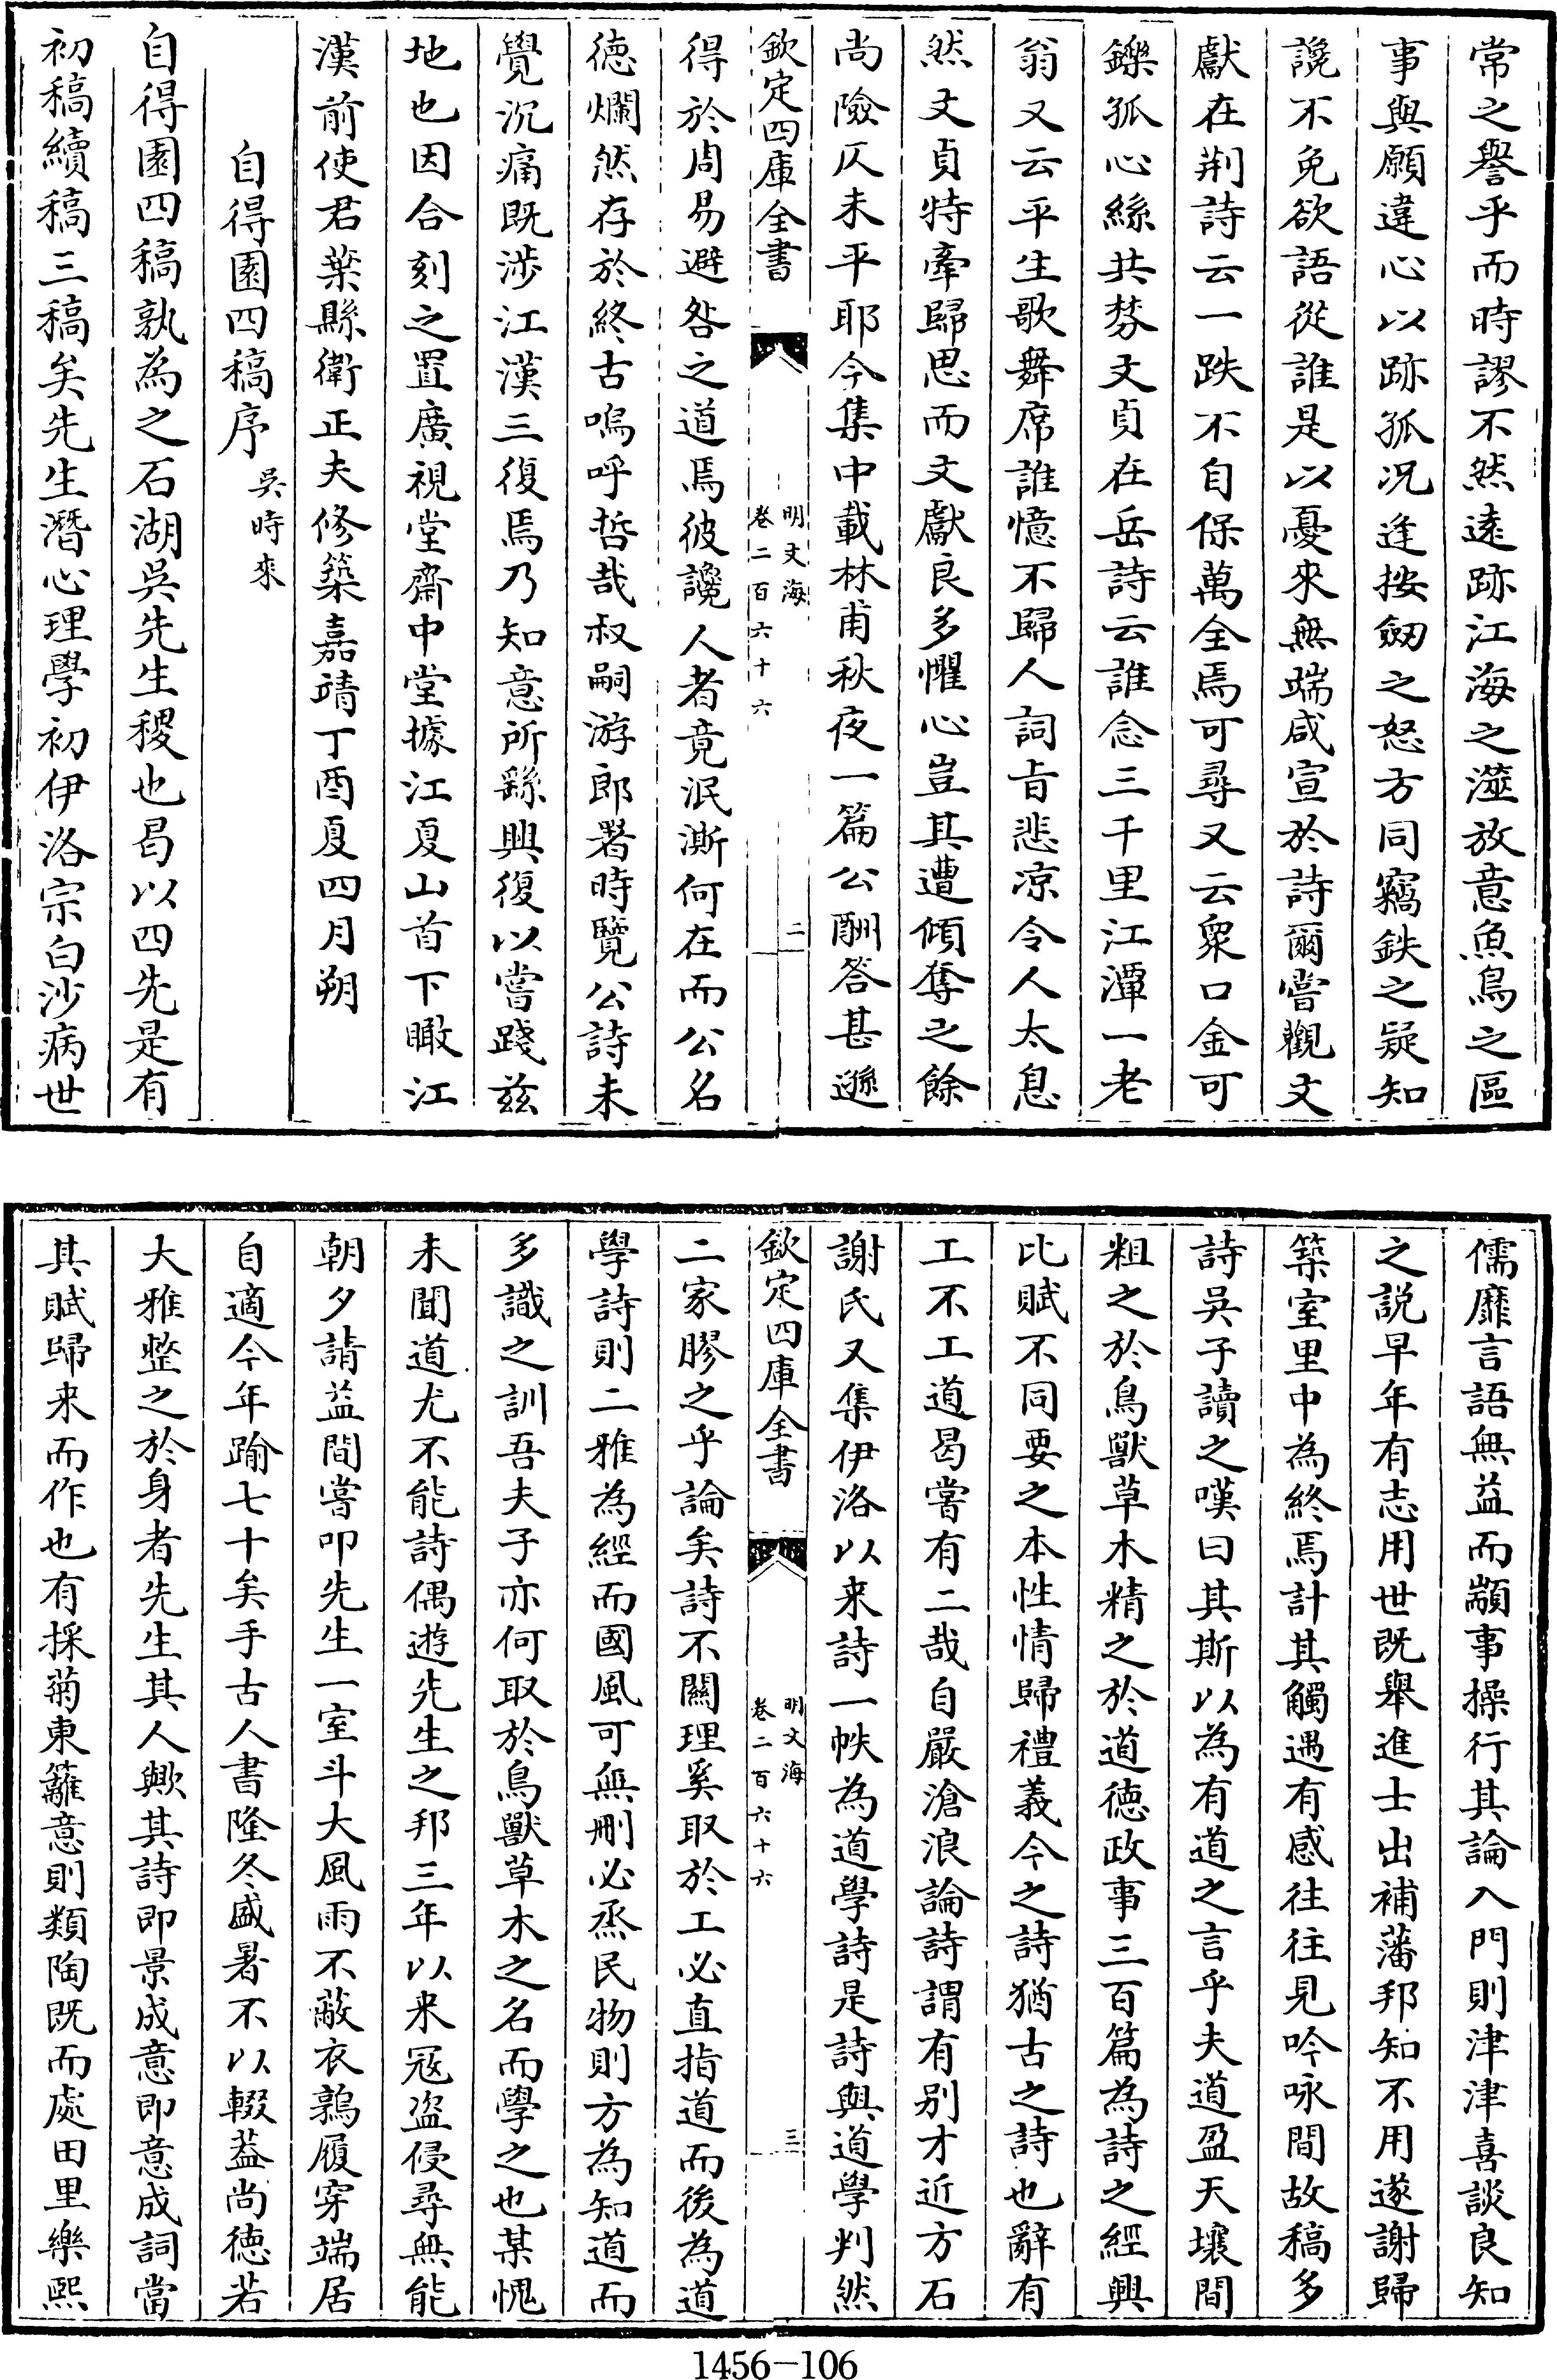 常之譽乎而時謬不然遠跡江海之澨放意魚鳥之區
事與願違心以跡孤况逢按劒之怒方同竊鈇之疑知
讒不免欲語從誰是以憂來無端咸宣於詩爾嘗觀文
獻在荆詩云一跌不自保萬全焉可尋又云衆口金可
鑠孤心絲共棼文貞在岳詩云誰念三千里江潭一老
翁又云平生歌舞席誰憶不歸人詞㫖悲凉令人太息
然文貞特牽歸思而文獻良多懼心豈其遭傾奪之餘
尚險仄未平耶今集中載林甫秋夜一篇公酬答甚遜
欽定四庫全書
明文海
卷二百六十六
二
得於周易避咎之道焉彼讒人者竟泯澌何在而公名
德爛然存於終古嗚呼哲哉叔嗣游郎署時覽公詩未
覺沉痛既涉江漢三復焉乃知意所繇興復以嘗踐兹
地也因合刻之置廣視堂齋中堂據江夏山首下瞰江
漢前使君葉縣衛正夫修築嘉靖丁酉夏四月朔
自得園四稿序
吳時來
自得園四稿孰為之石湖吳先生稷也曷以四先是有
初稿續稿三稿矣先生潛心理學初伊洛宗白沙病世
儒靡言語無益而顓事操行其論入門則津津喜談良知
之説早年有志用世既舉進士出補藩邦知不用遂謝歸
築室里中為終焉計其觸遇有感往往見吟咏間故稿多
詩吳子讀之嘆曰其斯以為有道之言乎夫道盈天壤間
粗之於鳥獸草木精之於道德政事三百篇為詩之經興
比賦不同要之本性情歸禮義今之詩猶古之詩也辭有
工不工道曷嘗有二哉自嚴滄浪論詩謂有别才近方石
謝氏又集伊洛以来詩一帙為道學詩是詩與道學判然
欽定四庫全書
明文海
卷二百六十六
三
二家膠之乎論矣詩不關理奚取於工必直指道而後為道
學詩則二雅為經而國風可無刪必烝民物則方為知道而
多識之訓吾夫子亦何取於鳥獸草木之名而學之也某愧
未聞道尤不能詩偶遊先生之邦三年以来冦盗侵尋無能
朝夕請益間嘗叩先生一室斗大風雨不蔽衣鶉履穿端居
自適今年踰七十矣手古人書隆冬盛暑不以輟葢尚德若
大雅整之於身者先生其人歟其詩即景成意即意成詞當
其賦歸来而作也有採菊東籬意則類陶既而處田里樂熙
1456-106